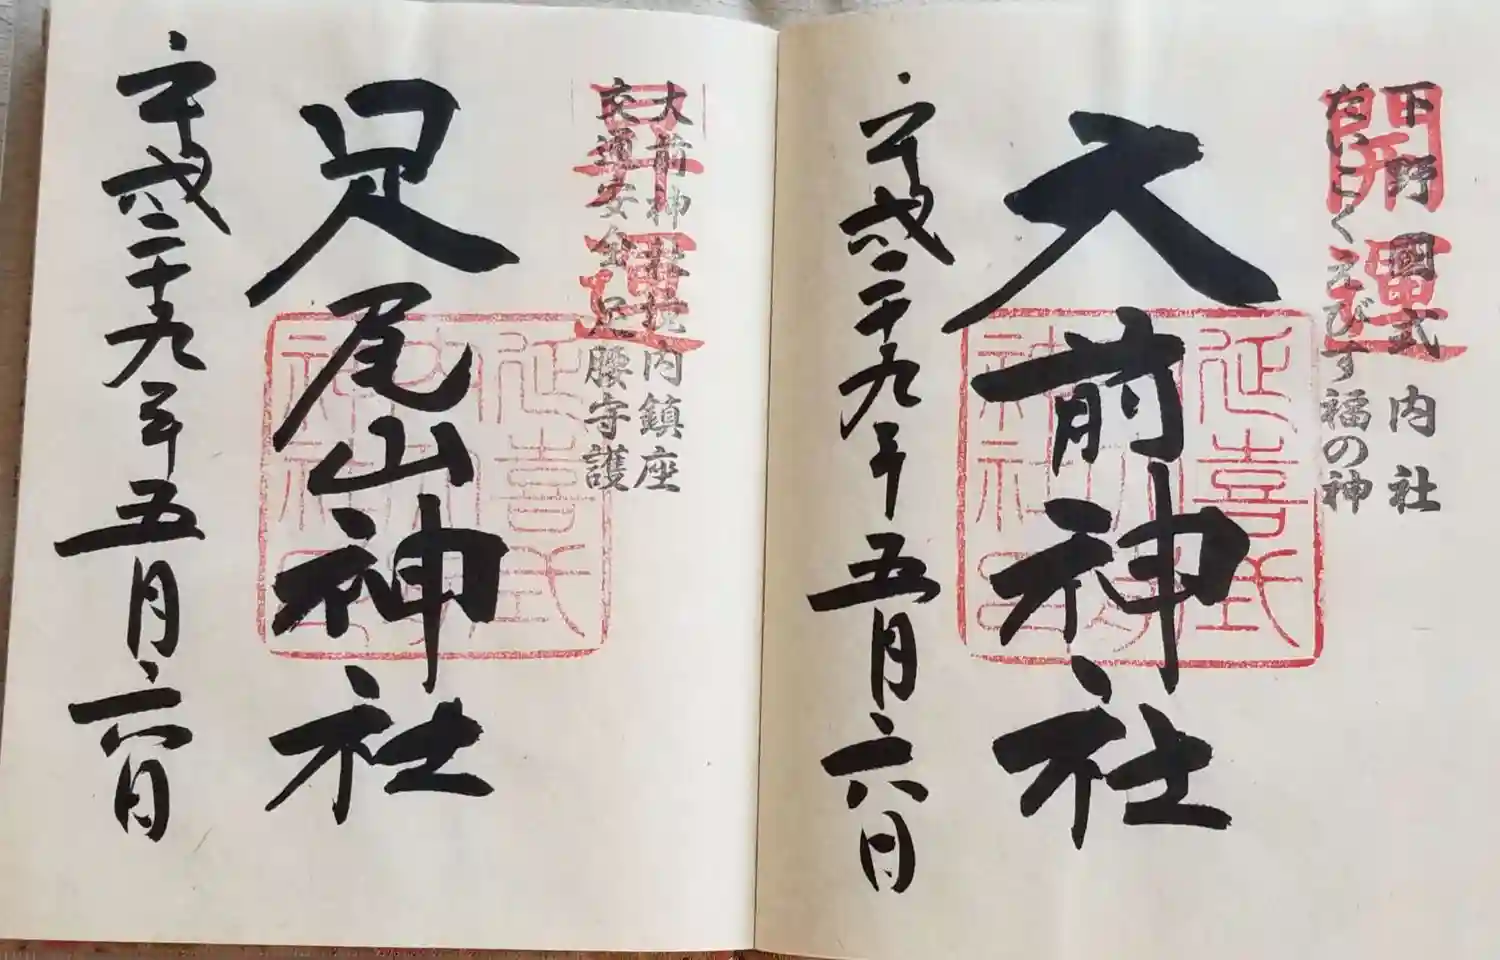 下野國式内社
だいこくえびす福の神
開運
大前神社
延喜式
平成二十九年五月六日
大前神社境内鎮座
交通安全足腰守護
昇運
足尾山神社
延喜式
平成二十九年五月六日